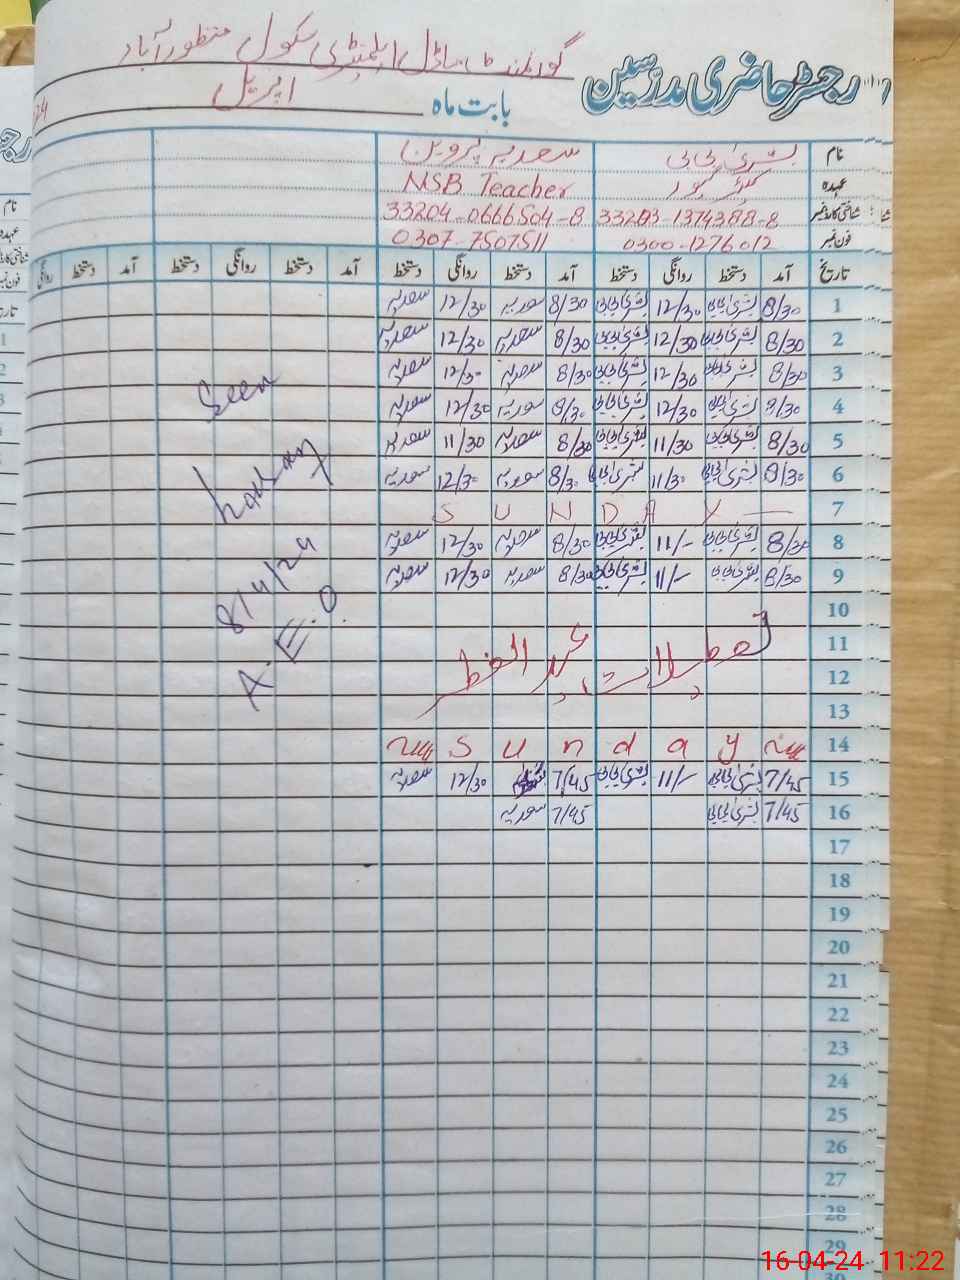 رجسٹر حاضری مدرسین گورنمنٹ ماڈل ایلیمنٹری سکول منظورآباد
بابت ماہ اپریل
نام بشریٰ بی بی سعدیہ پروین
عہدہ کیئر گیور NSB Teacher
شناختی کارڈ نمبر 33203-1374388-8 33204-0666504-8
فون نمبر 0300-1276012 0307-7507511
تاریخ آمد دستخط روانگی دستخط آمد دستخط روانگی دستخط آمد دستخط روانگی دستخط آمد دستخط روانگی
1 8/30 بشریٰ بی بی 12/30 بشریٰ بی بی 8/30 سعدیہ 12/30 سعدیہ
2 8/30 بشریٰ بی بی 12/30 بشریٰ بی بی 8/30 سعدیہ 12/30 سعدیہ
3 8/30 بشریٰ بی بی 12/30 بشریٰ بی بی 8/30 سعدیہ 12/30 سعدیہ
4 8/30 بشریٰ بی بی 12/30 بشریٰ بی بی 8/30 سعدیہ 12/30 سعدیہ
5 8/30 بشریٰ بی بی 11/30 بشریٰ بی بی 8/30 سعدیہ 11/30 سعدیہ
6 8/30 بشریٰ بی بی 11/30 بشریٰ بی بی 8/30 سعدیہ 12/30 سعدیہ
7 SUNDAY
8 8/30 بشریٰ بی بی 11/- بشریٰ بی بی 8/30 سعدیہ 12/30 سعدیہ
9 8/30 بشریٰ بی بی 11/- بشریٰ بی بی 8/30 سعدیہ 12/30 سعدیہ
10
11 تعطیلات عید الفطر
12
13
14 Sunday
15 7/45 بشریٰ بی بی 11/- بشریٰ بی بی 7/45 12/30 سعدیہ
16 7/45 بشریٰ بی بی 7/45 سعدیہ
17
18
19
20
21
22
23
24
25
26
27
28
29
30
Seen
8/4/24
A.E.O
نام
عہدہ
16-04-24 11:22